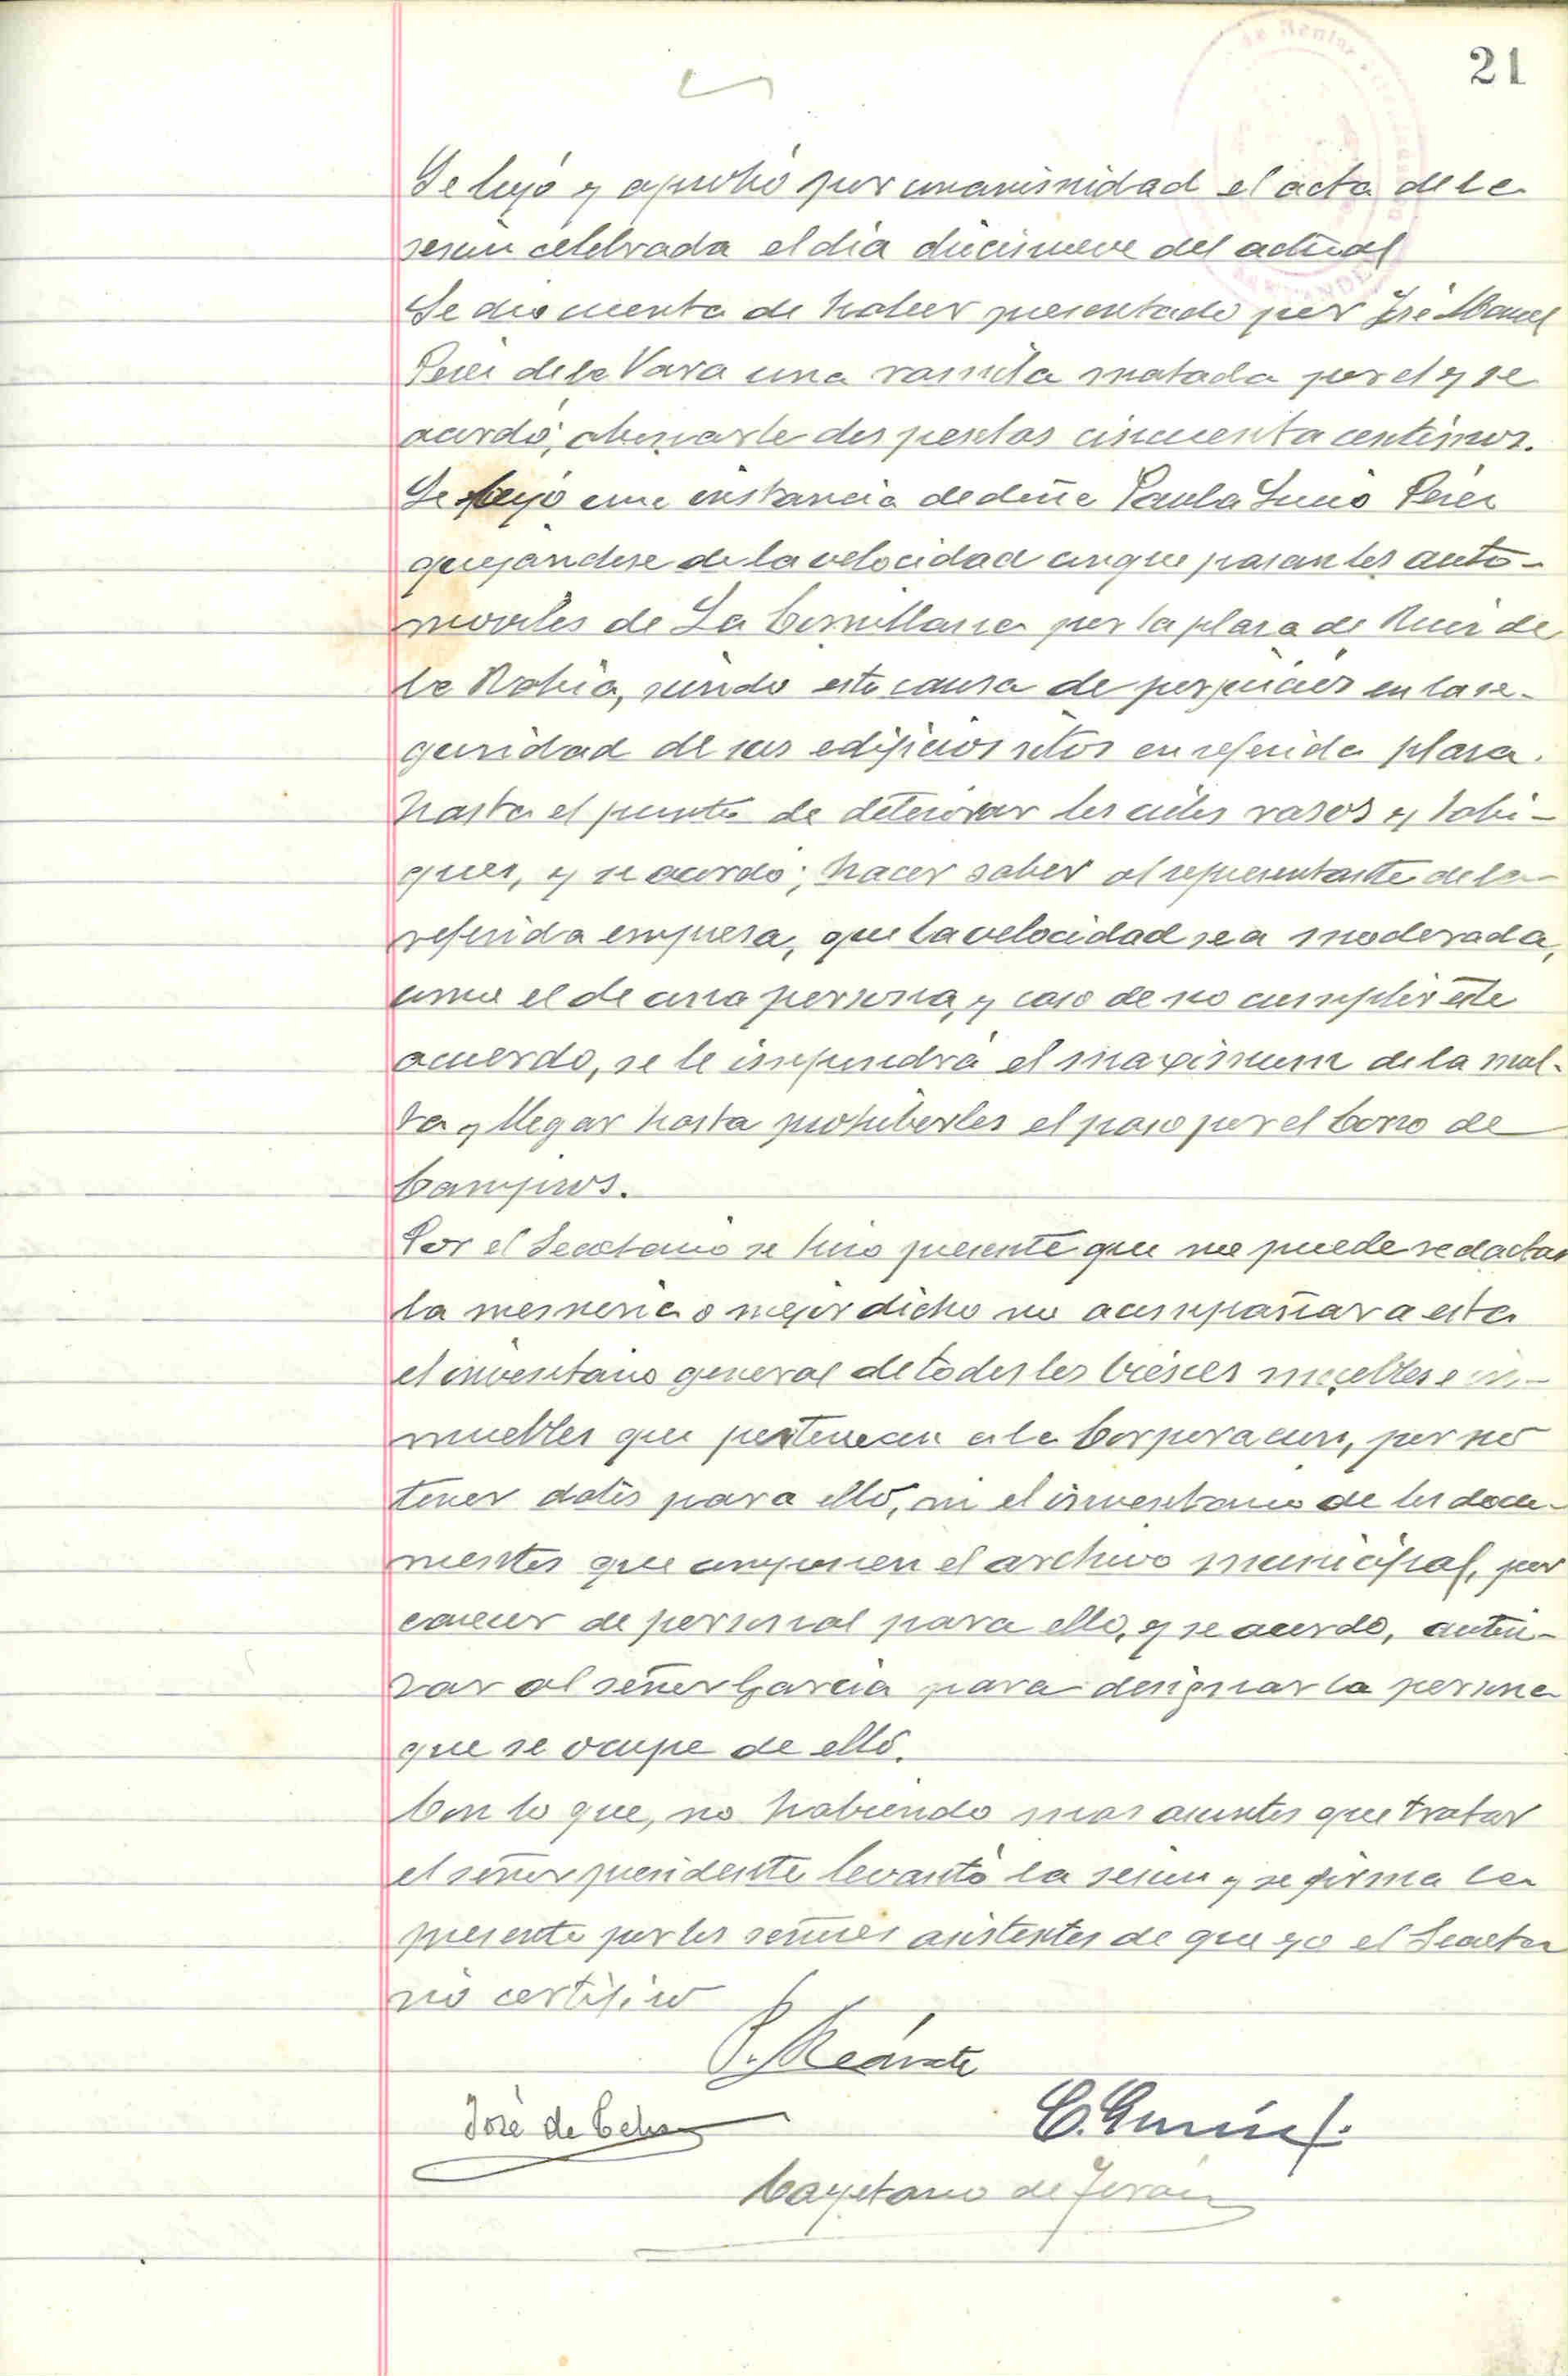 21
Se leyó y aprobó por unanimidad el acta de la
sesión celebrada el día diecinueve del actual
Se dio cuenta de haber presentado por José Manuel
Perez de la Vara una rámila matada por el y se
acordó; abonarle dos pesetas cincuenta centimos.
Se leyó una instancia de doña Paula Lucio Perez
quejandose de la velocidad conque pasan los auto-
moviles de La Comillana por la plaza de Ruiz de
la Rabia, siendo esto causa de perjuicios en la se-
guridad de sus edificios sitos en referida plaza.
hasta el punto de deteriorar los cielos rasos y tabi-
ques, y se acordó; hacer saber al representante de la
referida empresa, que la velocidad sea moderada,
como el de una persona, y caso de no cumplir este
acuerdo, se le impondrá el maximum de la mul-
ta y llegar hasta prohiberles el paso por el Corro de
Campios.
Por el Secretario se hizo presente que no puede redactar
la memoria o mejor dicho no acompañar a esta
el inventario general de todos los bienes muebles e in-
muebles que pertenecen a la Corporacion, por no
tener datos para ello, ni el inventario de los docu-
mentos que componen el archivo municipal, por
carecer de personal para ello, y se acordo, autori-
zar al señor Garcia para designar la persona
que se ocupe de ello.
Con lo que, no habiendo mas asuntos que tratar
el señor presidente levantó la sesion y se firma la
presente por los señores asistentes de que yo el Secreta
rio certifico
José de Celis
Cayetano de Terán